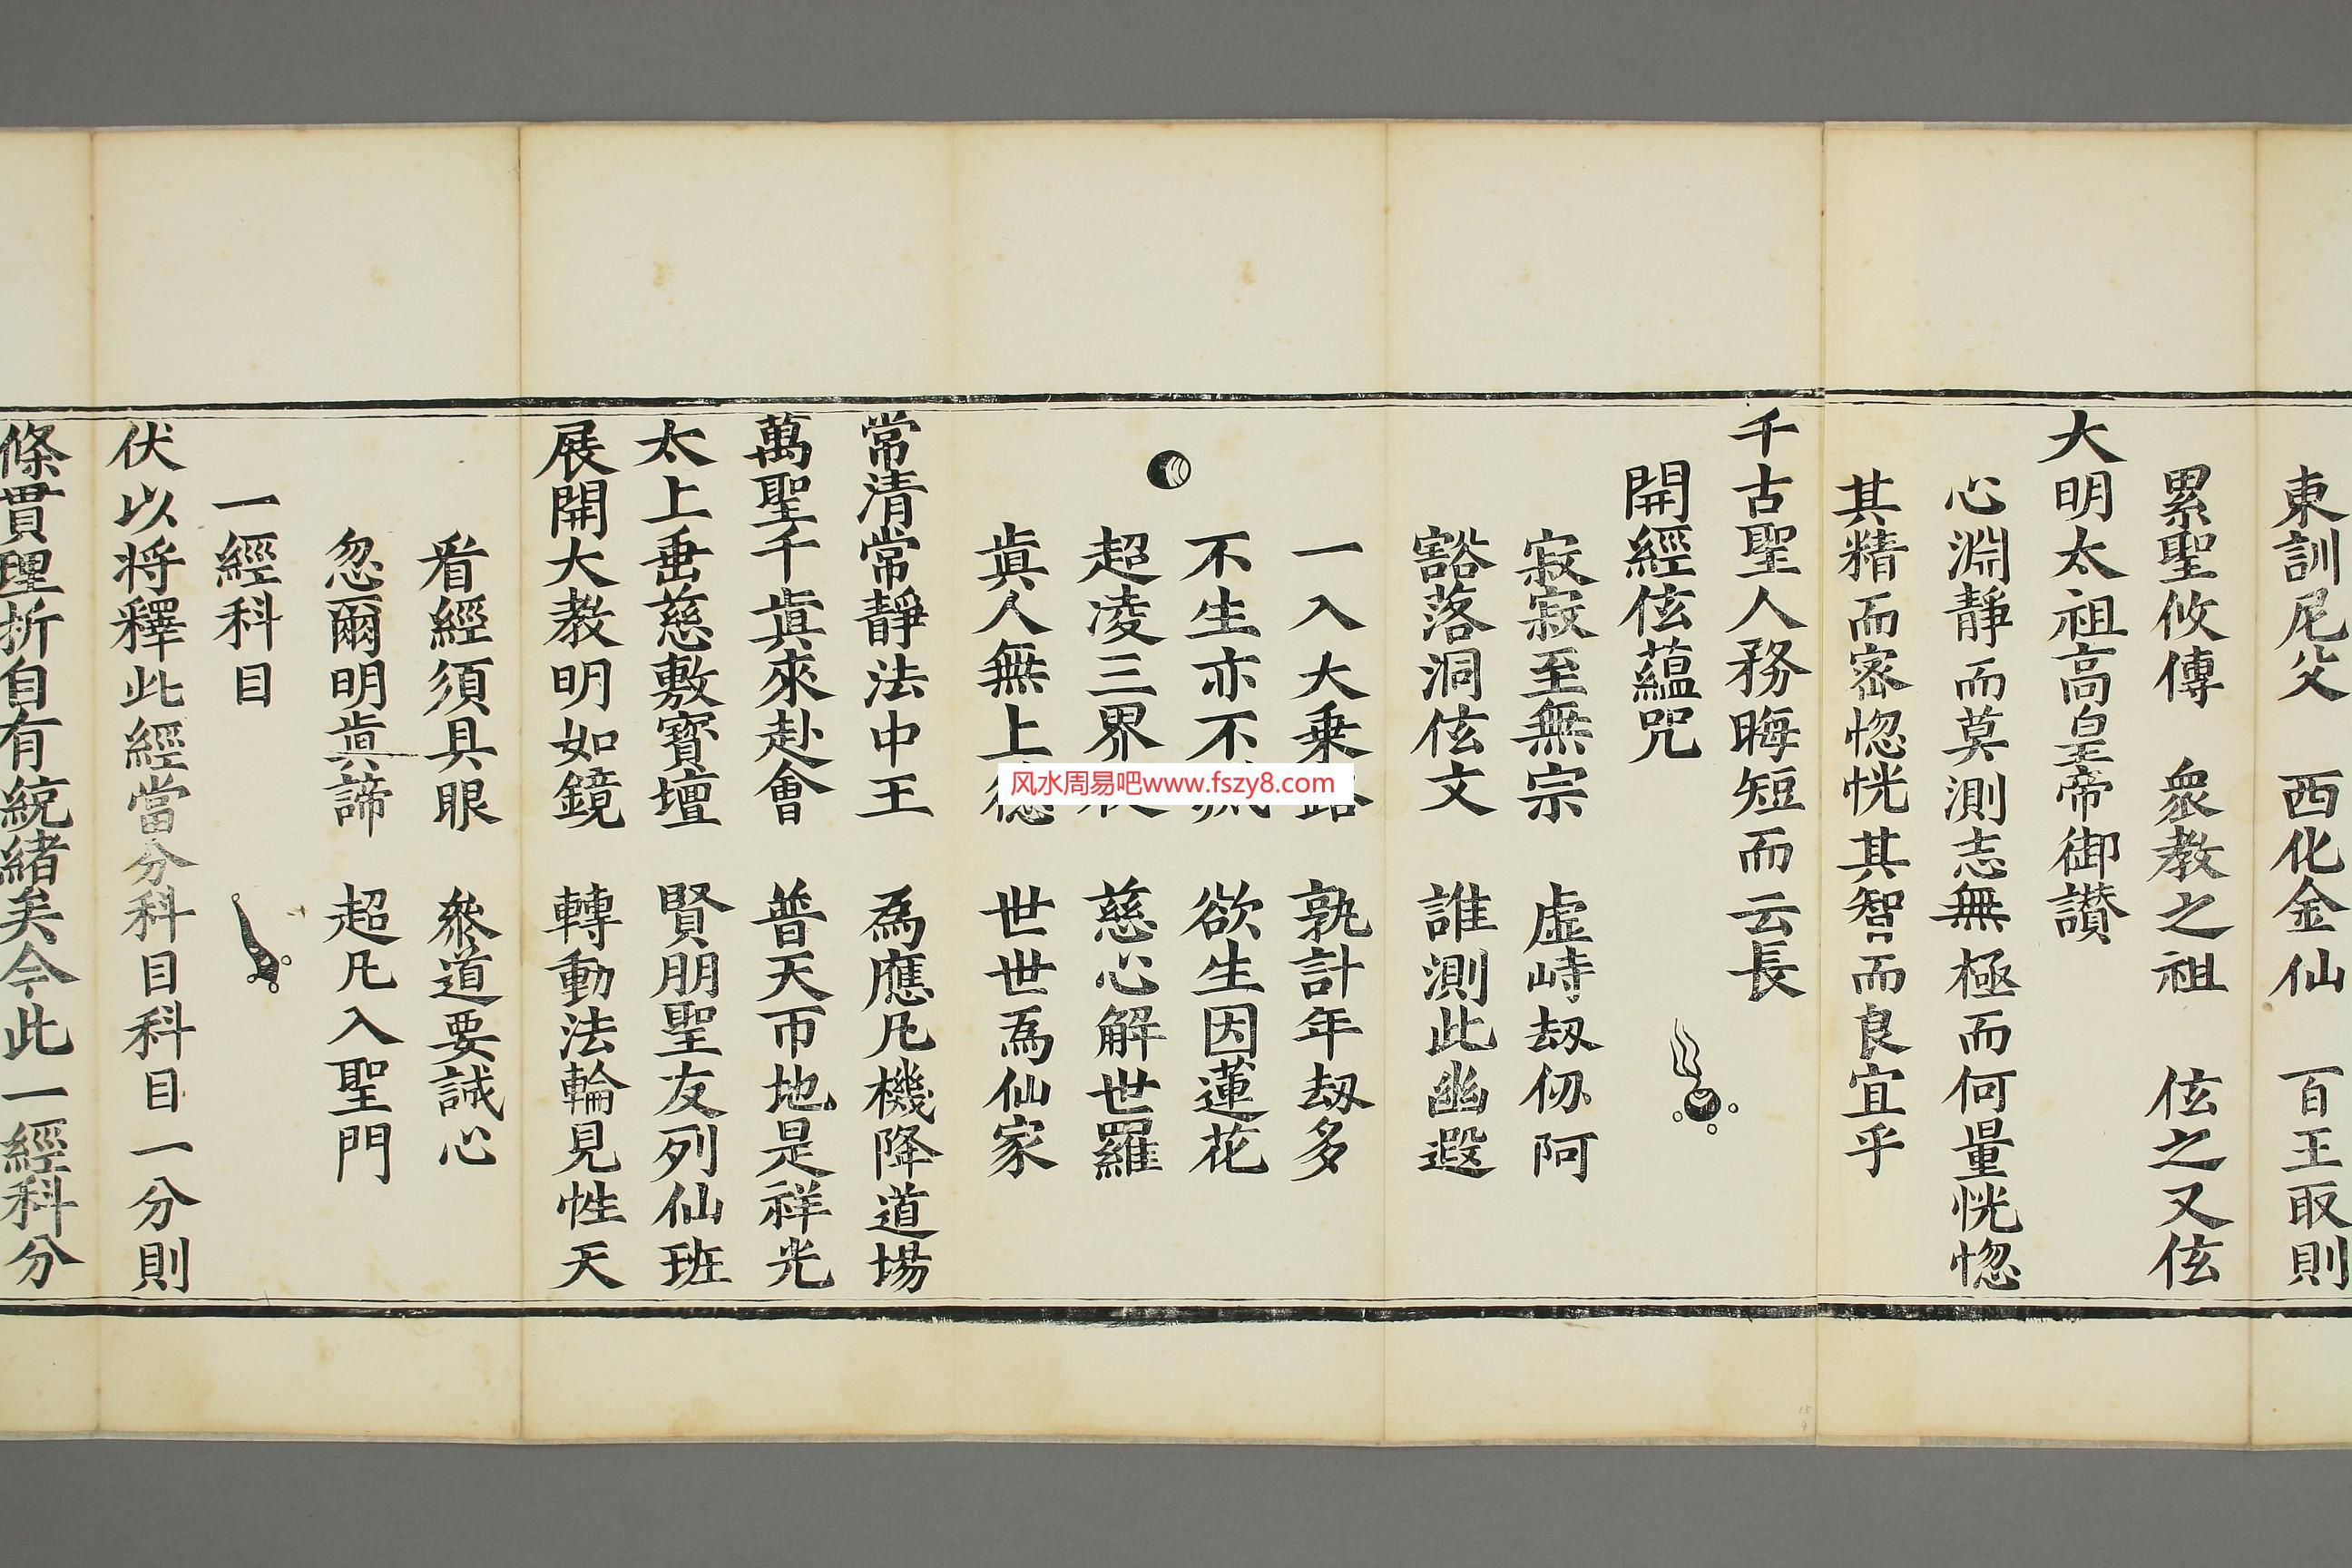 東訓尼父　西化金仙　百王取則
累聖攸傳　衆教之祖　伭之又伭
大明太祖高皇帝御讃
心淵靜而莫測志無極而何量恍惚
其精而密惚恍其智而良宜乎
千古聖人務晦短而云長
開經伭蘊咒
寂寂至無宗　虛峙刼仞阿
豁落洞伭文　誰測此幽遐
一入大乗路　孰計年刼多
不生亦不滅　欲生因蓮花
超凌三界　慈心解世羅
眞人無上德　世世爲仙家
常清常靜法中王　爲應凡機降道場
萬聖千眞來赴會　普天帀地是祥光
太上垂慈敷寶壇　賢朋聖友列仙班
展開大教明如鏡　轉動法輪見性天
看經須具眼　叅道要誠心
忽爾明眞諦　超凡入聖門
一經科目
伏以将釋此經當分科目科目一分則
條貫理折自有統緒矣今此一經科分
风水周易吧www.fszy8.com